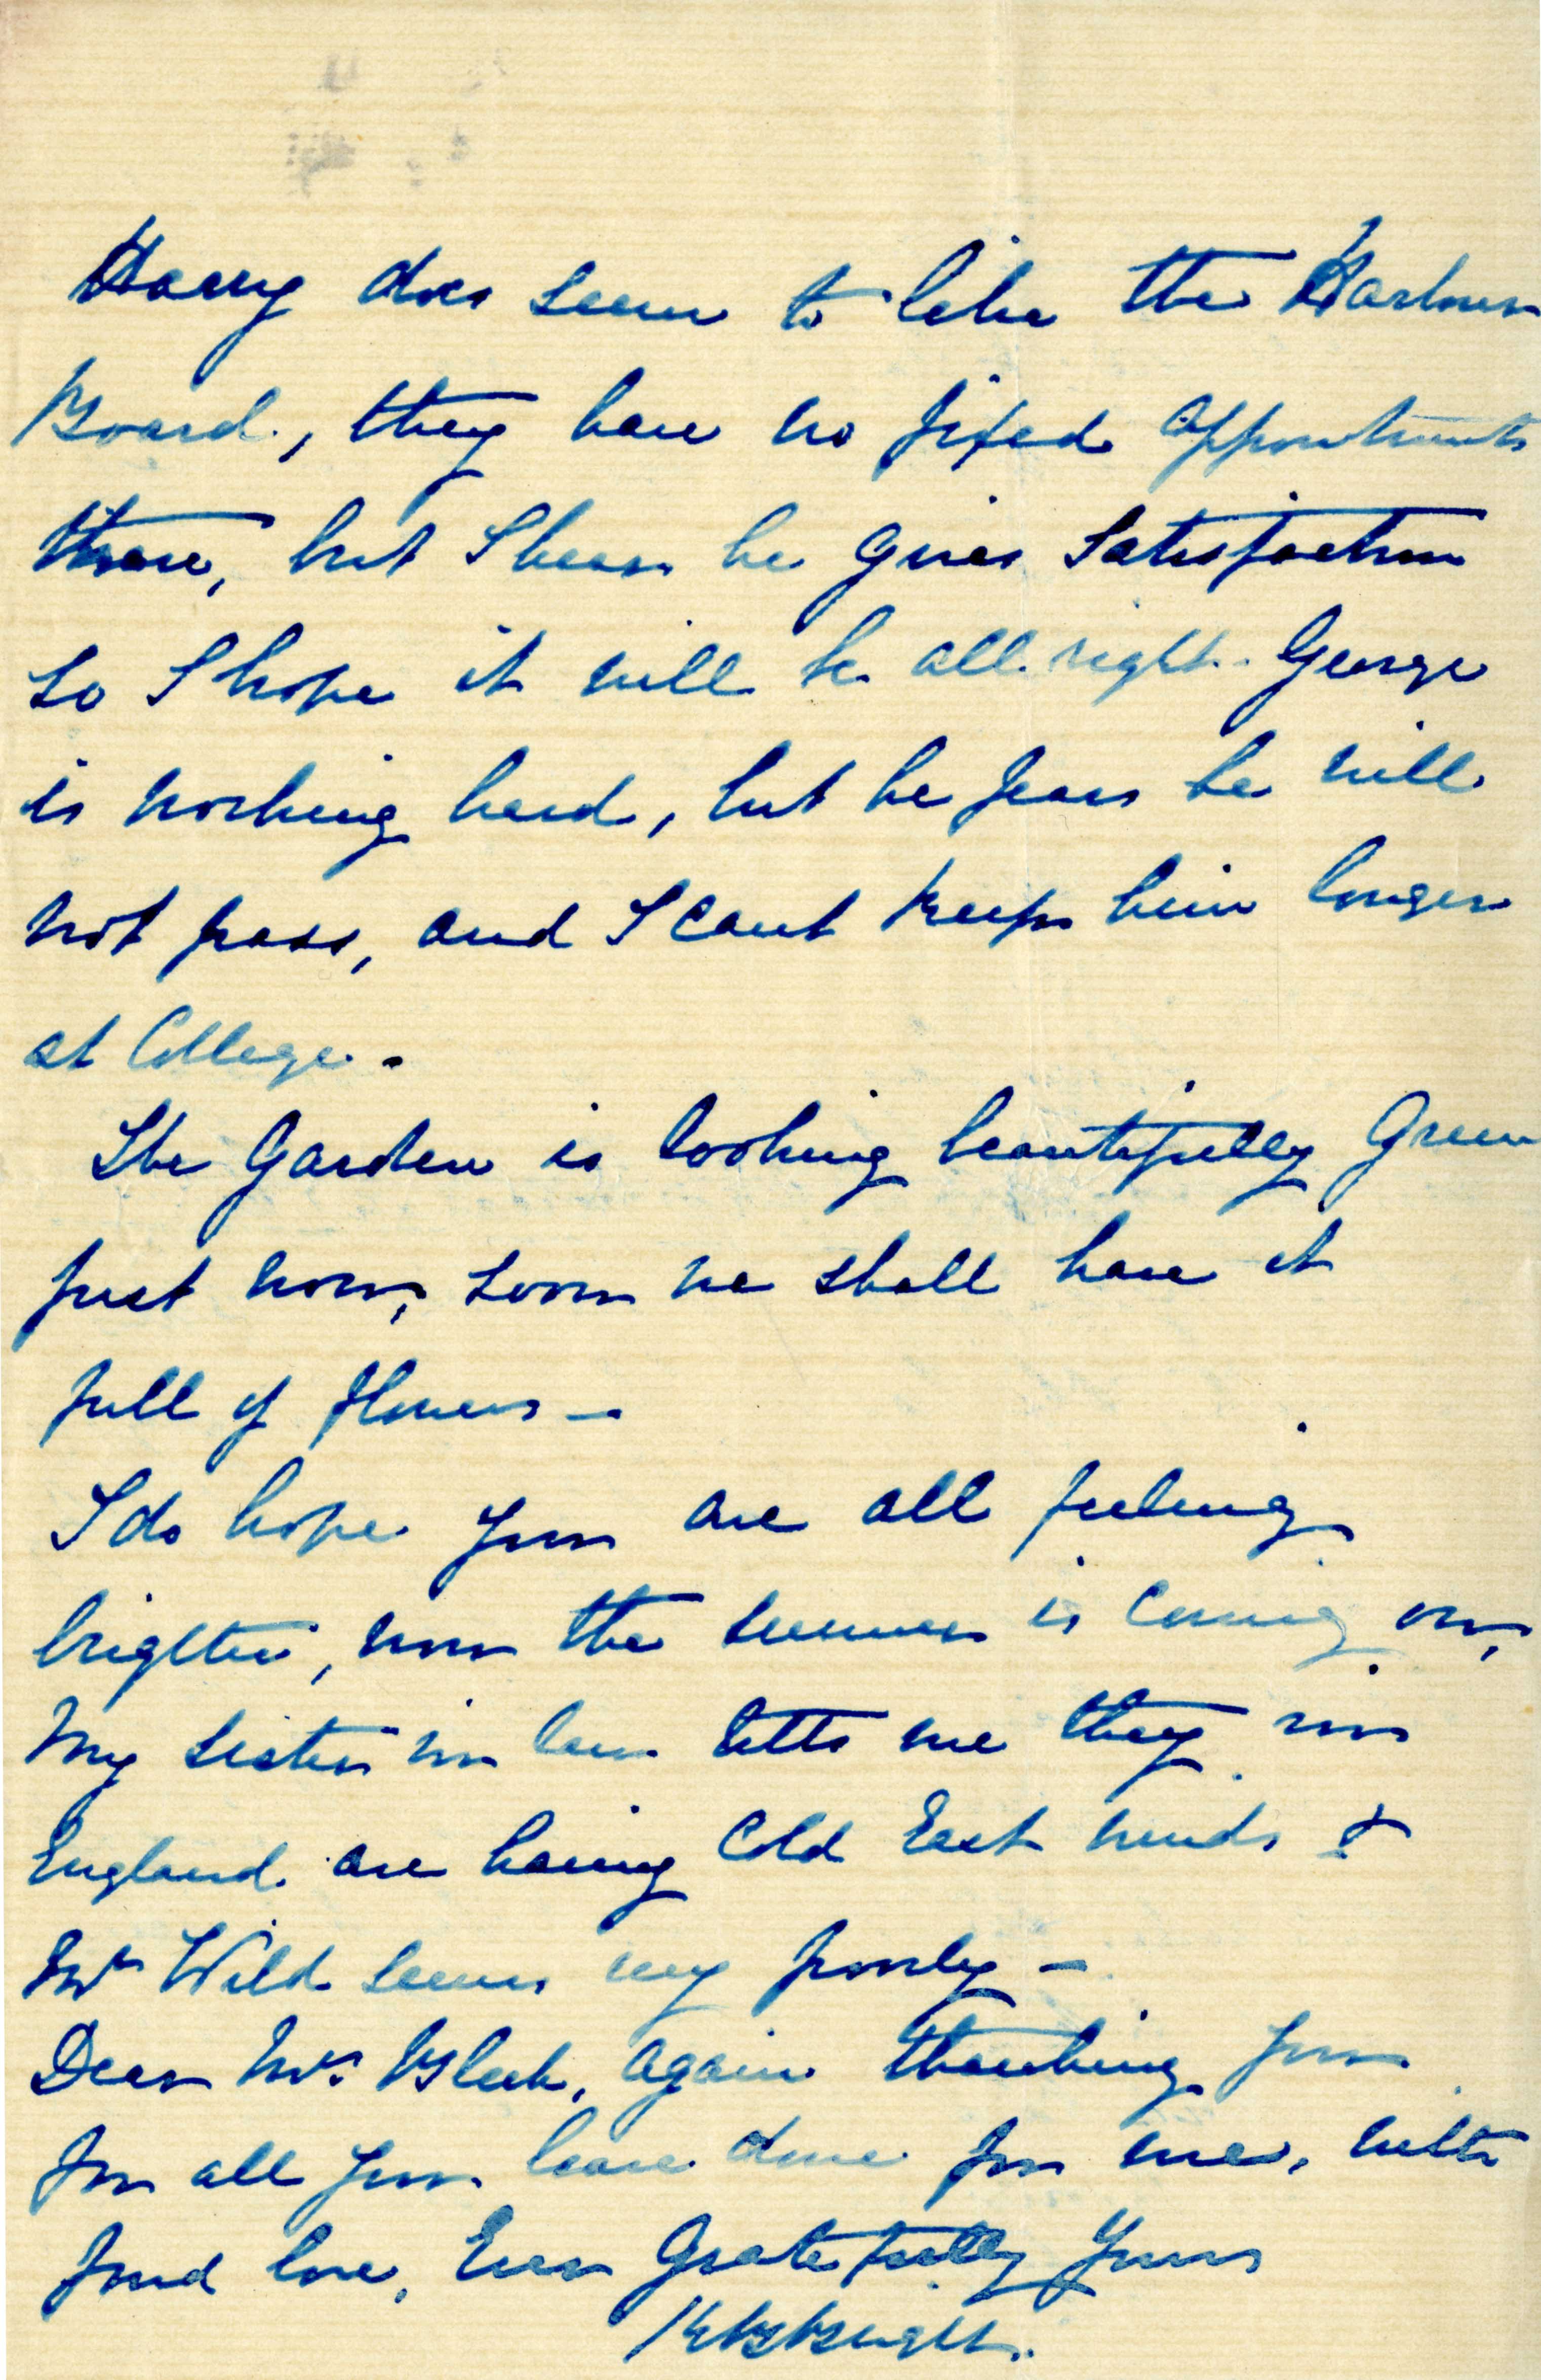 Harry does seem to like the Harbour
Board, they have no fixed appointments
there, but I hear he gives Satisfaction
so I hope it will be all right. George
is working hard, but he fears he will
not pass, and I cant keep him longer
at College.
The Garden is looking beautifully Green
just now, soon we shall have it
full of flowers -
I do hope you are all feeling
brighter, now the summer is coming on,
My sister in law tells me they in
England are having Cold East winds &
Mr Wild seems very poorly -
Dear Mrs Bleek, again thanking you
for all you have done for me, with
fond love, Ever Gratefully Yours